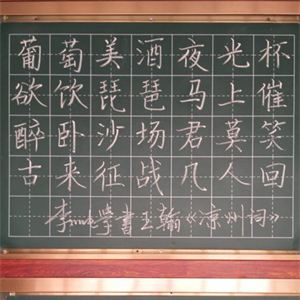 葡萄美酒夜光杯
欲饮琵琶马上催
醉卧沙场君莫笑
古来征战几人回
李 學書王翰《凉州词》